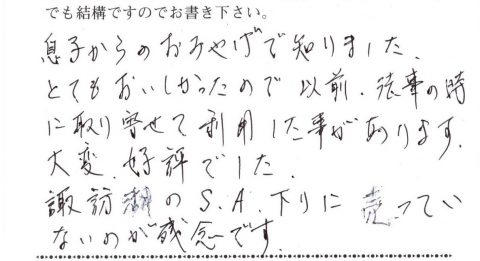 でも結構ですのでお書き下さい。
息子からのおみやげで知りました、
とてもおいしかったので以前、法事の時
に取り寄せて利用した事があります。
大変、好評でした、
諏訪湖のS.A.下りに売ってい
ないのが残念です。